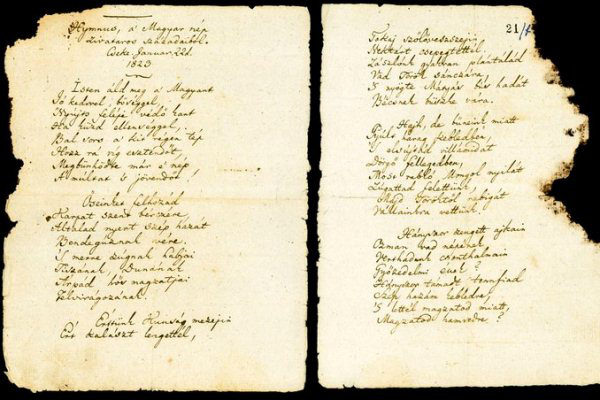 Hymnus, a' Magyar nép
zivataros századaiból.
Cseke Januar. 22d.
1823
Isten áld meg a' Magyart
Jó kedvvel, bőséggel,
Nyújts feléje védő kart
Ha küzd ellenséggel;
Bal sors a' kit régen tép
Hozz rá víg esztendőt,
Megbűnhődte már e' nép
A' múltat 's jövendőt!
Őseinket felhozád
Kárpát szent bérczére,
Általad nyert szép hazát
Bendegúznak vére,
'S merre zúgnak habjai
Tiszának, Dunának,
Árpád hős magzatjai
Felvirágozának.
Értünk Kunság mezejin
Ért kalászt lengettél,
21/
Tokaj szőlővesszejein
Nektárt csepegtettél.
Zászlónk gyakran plántálád
Vad Török sánczára,
'S nyögte Mátyás bús hadát
Bécsnek büszke vára.
Hajh, de bűneink miatt
Gyúlt harag kebledben,
'S elsújtád villámidat
Dörgő fellegedben,
Most rabló Mongol nyilát
Zúgattad felettünk,
Majd Töröktől rabigát
Vállainkra vettünk.
Hányszor zengett ajkain
Ozman vad népének
Vert hadunk csonthalmain
Győzedelmi ének?
Hányszor támadt tenfiad
Szép hazám kebledre,
'S lettél magzatod miatt,
Magzatod hamvvedre?